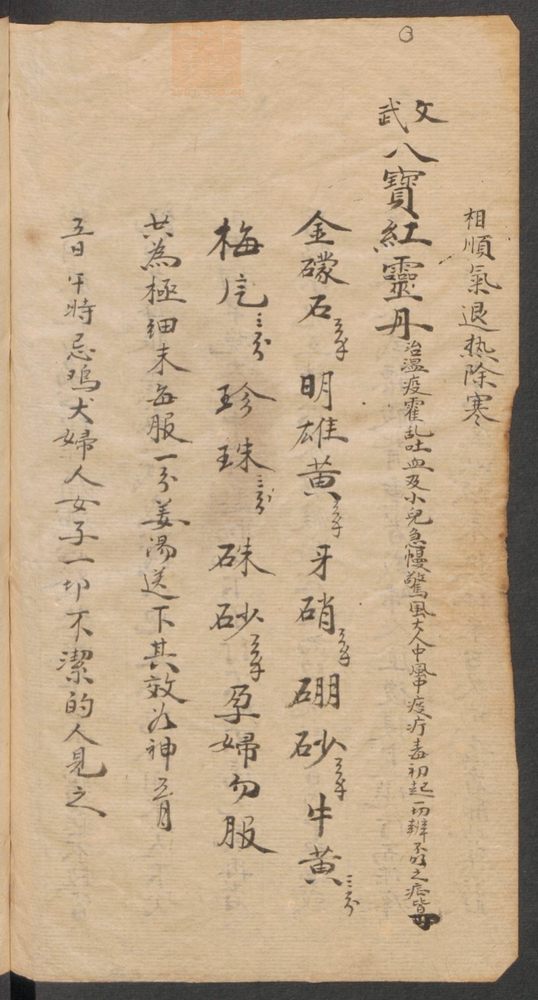 相順氣退热除寒
文武八寶紅靈丹治溫疫霍乱吐血及小兒急慢驚風大人中風中疫疔毒初起一切辨不明之症皆
金礞石三錢明雄黄三錢牙硝三錢硼砂三錢牛黄三分
梅片三分珍珠三分硃砂三錢孕婦勿服
共為極细末每服一分姜湯送下其效为神五月
五日午時忌鸡犬婦人女子一切不潔的人見之